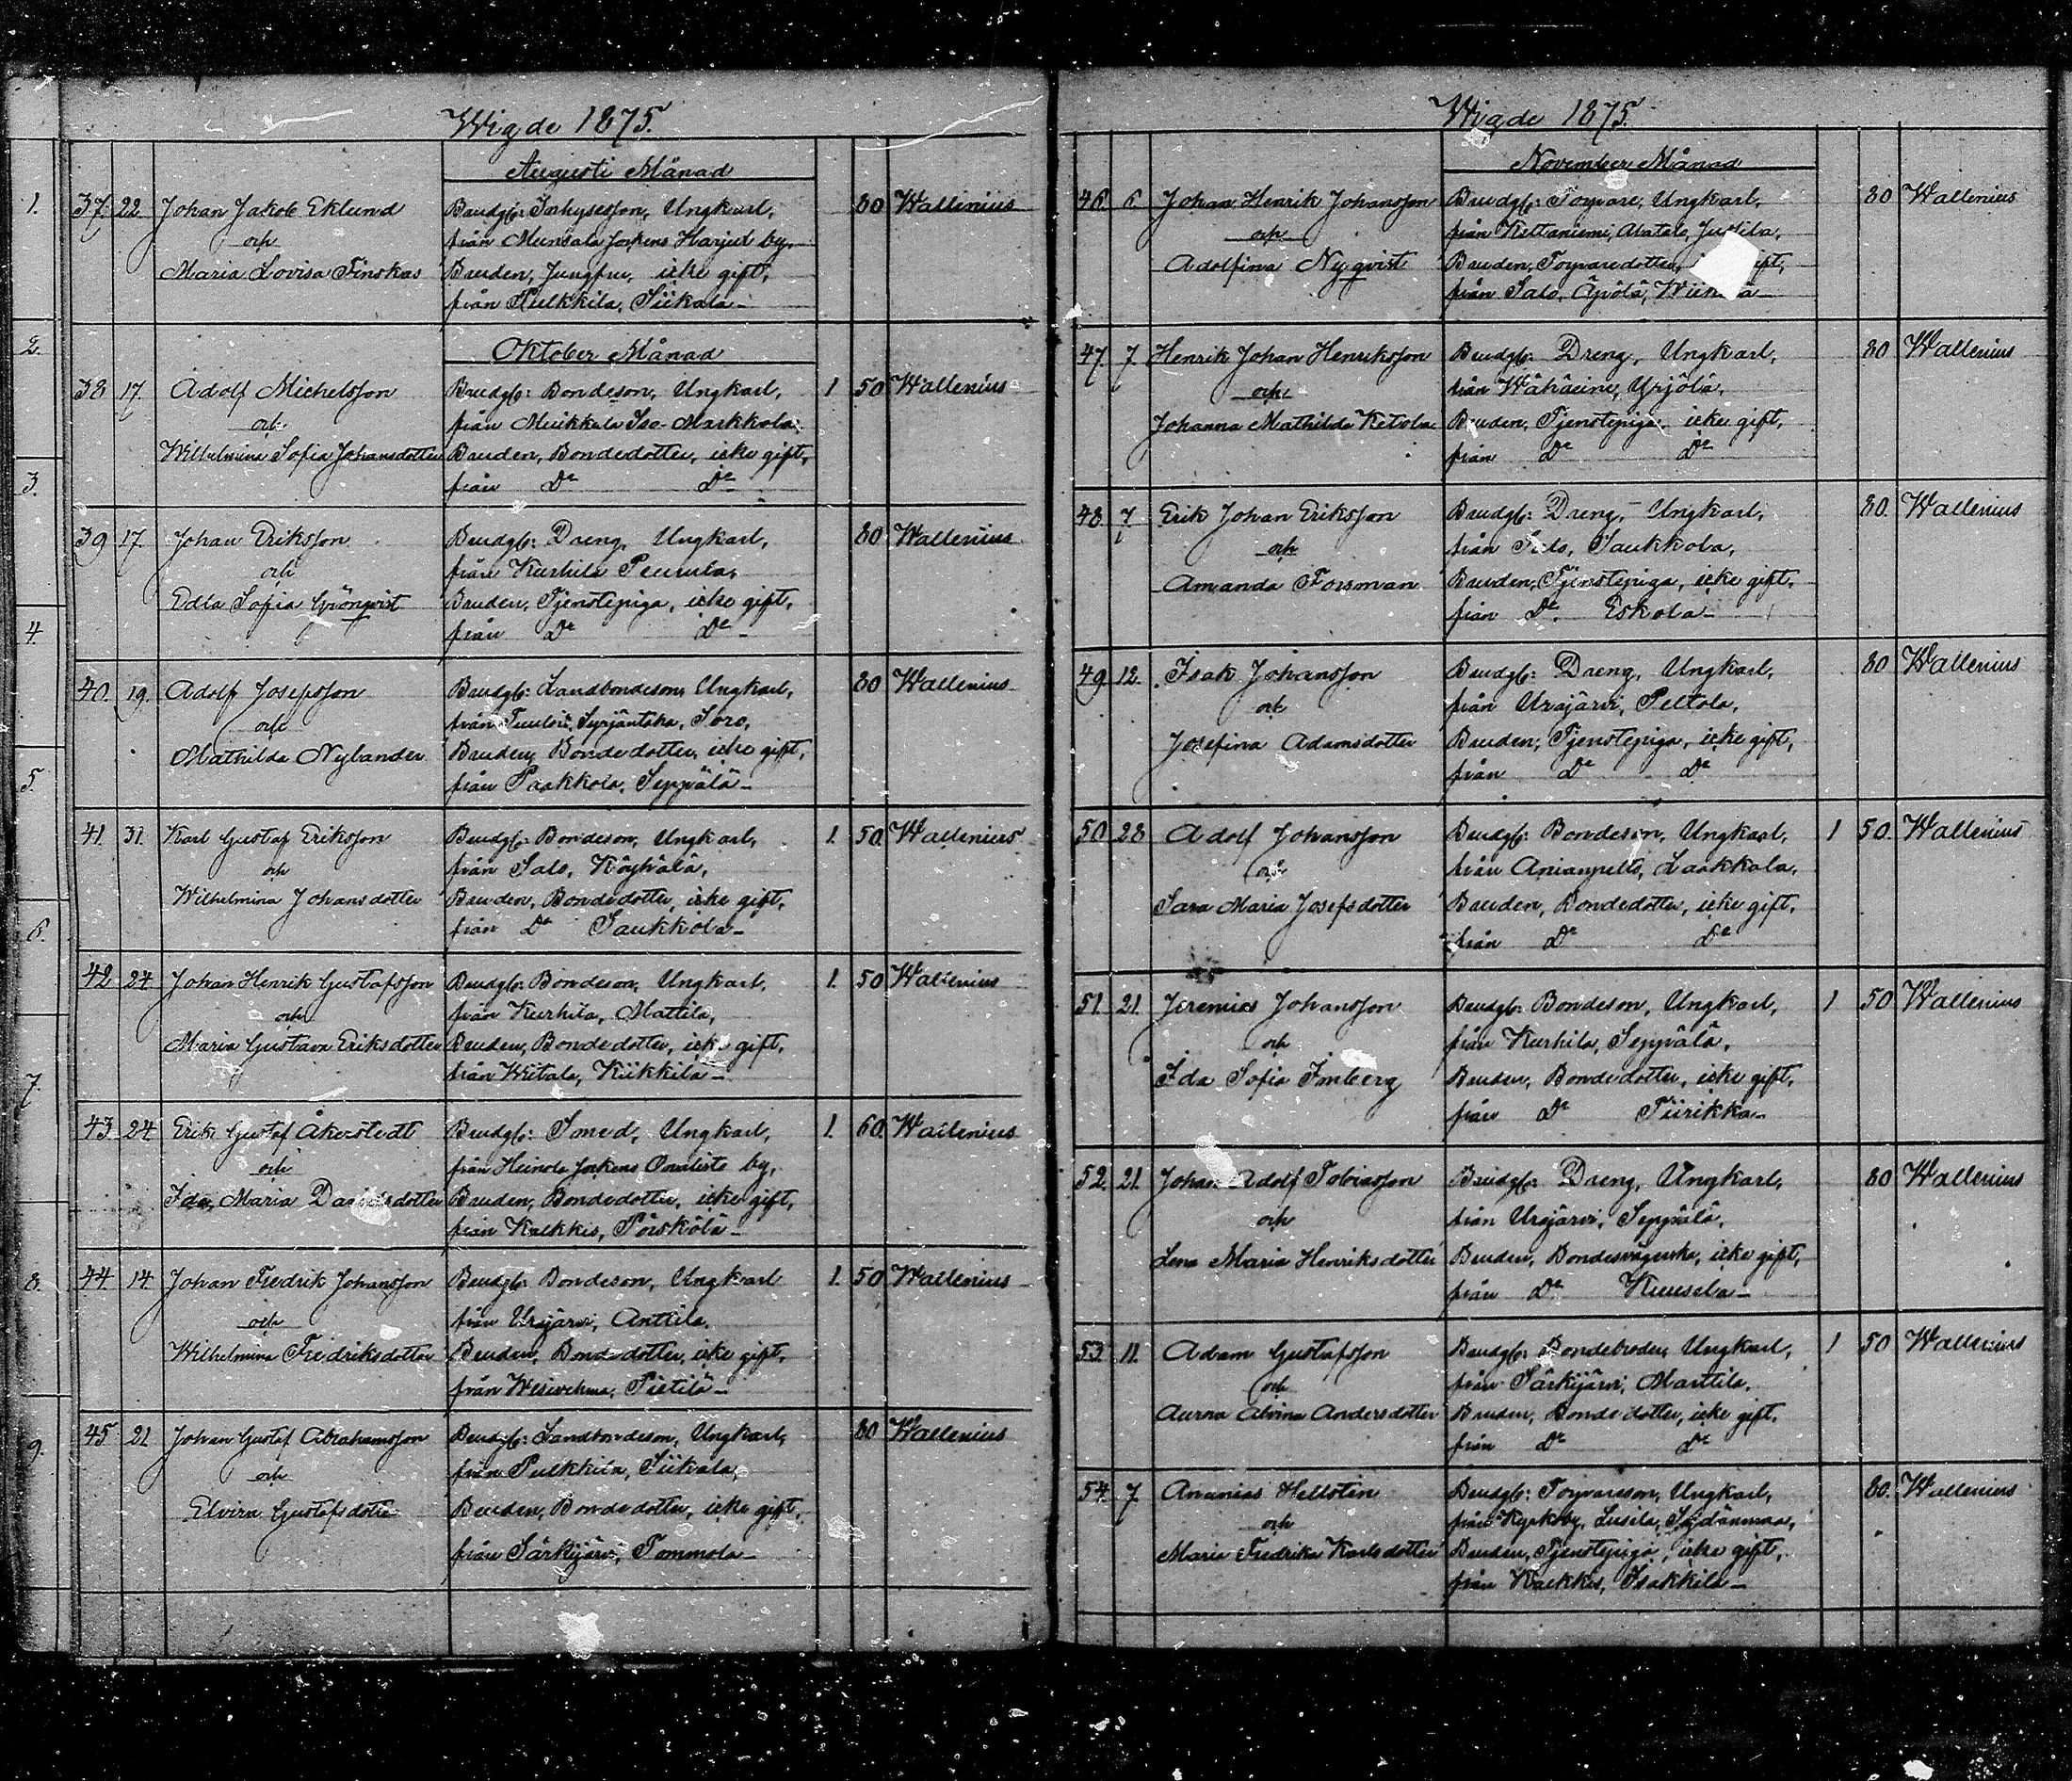 Wigde 1875.
Augusti Månad
37. 22. Johan Jakob Eklund Brudg: Inhysesson, Ungkarl, 80 Wallenius
och från Munsala sockens Harjux by.
Maria Lovisa Finskas Bruden, Jungfru, icke gift,
från Pulkkila, Siikala
Oktober Månad
38 17. Adolf Michelsson Brudg: Bondeson, Ungkarl, 1 50 Wallenius
och från Muikkala Iso-Markkola.
Wilhelmina Sofia Johansdotter Bruden, Bondedotter, icke gift,
från Do Do
39 17. Johan Eriksson Brudg: Dreng, Ungkarl, 80 Wallenius
och från Kurhila Peuuula,
Edla Sofia Grönqvist Bruden, Tjenstepiga, icke gift,
från Do Do
40. 19. Adolf Josepsson Brudg: Landbondeson, Ungkarl, 80 Wallenius
och från Tuulois, Syrjäntaka, Soro,
Mathilda Nylander Bruden, Bondedotter, icke gift,
från Paakkola, Seppälä
41. 31. Karl Gustaf Eriksson Brudg: Bondeson, Ungkarl, 1. 50. Wallenius
och från Salo, Köyhälä,
Wilhelmina Johansdotter Bruden, Bondedotter, icke gift,
från Do Saukkola
42 24 Johan Henrik Gustafsson Brudg: Bondeson, Ungkarl, 1. 50 Wallenius
och från Kurhila, Mattila,
Maria Gustava Eriksdotter Bruden, Bondedotter, icke gift,
från Writala, Kiikkilä
43. 24 Erik Gustaf Åkerstedt Brudg: Smed, Ungkarl, 1. 60. Wallenius
och från Heinola sockens Onalisto by,
Ida Maria Davidsdotter Bruden, Bondedotter, icke gift,
från Kalkkis, Pörskölä
44. 14. Johan Fredrik Johansson Brudg: Bondeson, Ungkarl 1. 50 Wallenius
och från Urajärvi, Anttila,
Wilhelmina Fredriksdotter Bruden, Bondedotter, icke gift,
från Wesivehma, Pietilä
45 21 Johan Gustaf Abrahamsson Brudg: Landbondeson, Ungkarl, 80 Wallenius
och från Pulkkila, Siikala,
Elvira Gustafsdotter Bruden, Bondedotter, icke gift,
från Särkijärvi, Tommola
1.
2.
3.
4.
5.
6.
7.
8.
9.
Wigde 1875.
November Månad
46. 6. Johan Henrik Johansson Brudg: Torpare, Ungkarl, 80 Wallenius
och från Kettaniemi, Alatalo, Jussila,
Adolfina Nyqvist Bruden, Torparedotter,
från Salo,
47. 7. Henrik Johan Henriksson Brudg: Dreng, Ungkarl, 80 Wallenius
och från Wähäeine, Yrjölä,
Johanna Mathilda Ketola Bruden, Tjenstepiga, icke gift,
från Do Do
48. 7. Erik Johan Eriksson Brudg: Dreng, Ungkarl, 80. Wallenius
och från Salo, Saukkola,
Amanda Forsman Bruden, Tjenstepiga, icke gift,
från Do Eskola
49 12. Isak Johansson Brudg: Dreng, Ungkarl, 80 Wallenius
och från Urajärvi, Peltola,
Josefina Adamsdotter Bruden, Tjenstepiga, icke gift,
från Do Do
50 28 Adolf Johansson Brudg: Bondeson, Ungkarl, 1 50. Wallenius
och från Anianpelto, Laakkala,
Sara Maria Josefsdotter Bruden, Bondedotter, icke gift,
från Do Do
51. 21. Jeremias Johansson Brudg: Bondeson, Ungkarl, 1 50 Wallenius
och från Kurhila, Seppälä,
Ida Sofia Imberg Bruden, Bondedotter, icke gift,
från Do Piirikka
52. 21. Johan Adolf Tobiasson Brudg: Dreng, Ungkarl, 80 Wallenius
och från Urajärvi, Seppälä,
Lena Maria Henriksdotter Bruden, Bondesvägerska, icke gift,
från Do Kuusela
53. 11. Adam Gustafsson Brudg: Bondebroder, Ungkarl, 1 50 Wallenius
och från Särkijärvi, Marttila,
Aurora Alvina Andersdotter Bruden, Bondedotter, icke gift,
från Do Do
54. 7. Ananias Hellsten Brudg: Torparsson, Ungkarl, 80. Wallenius
och från Kyrkoby, Lusila, Sydänmaa,
Maria Fredrika Karlsdotter Bruden, Tjenstepiga, icke gift,
från Kalkkis, Isakkila